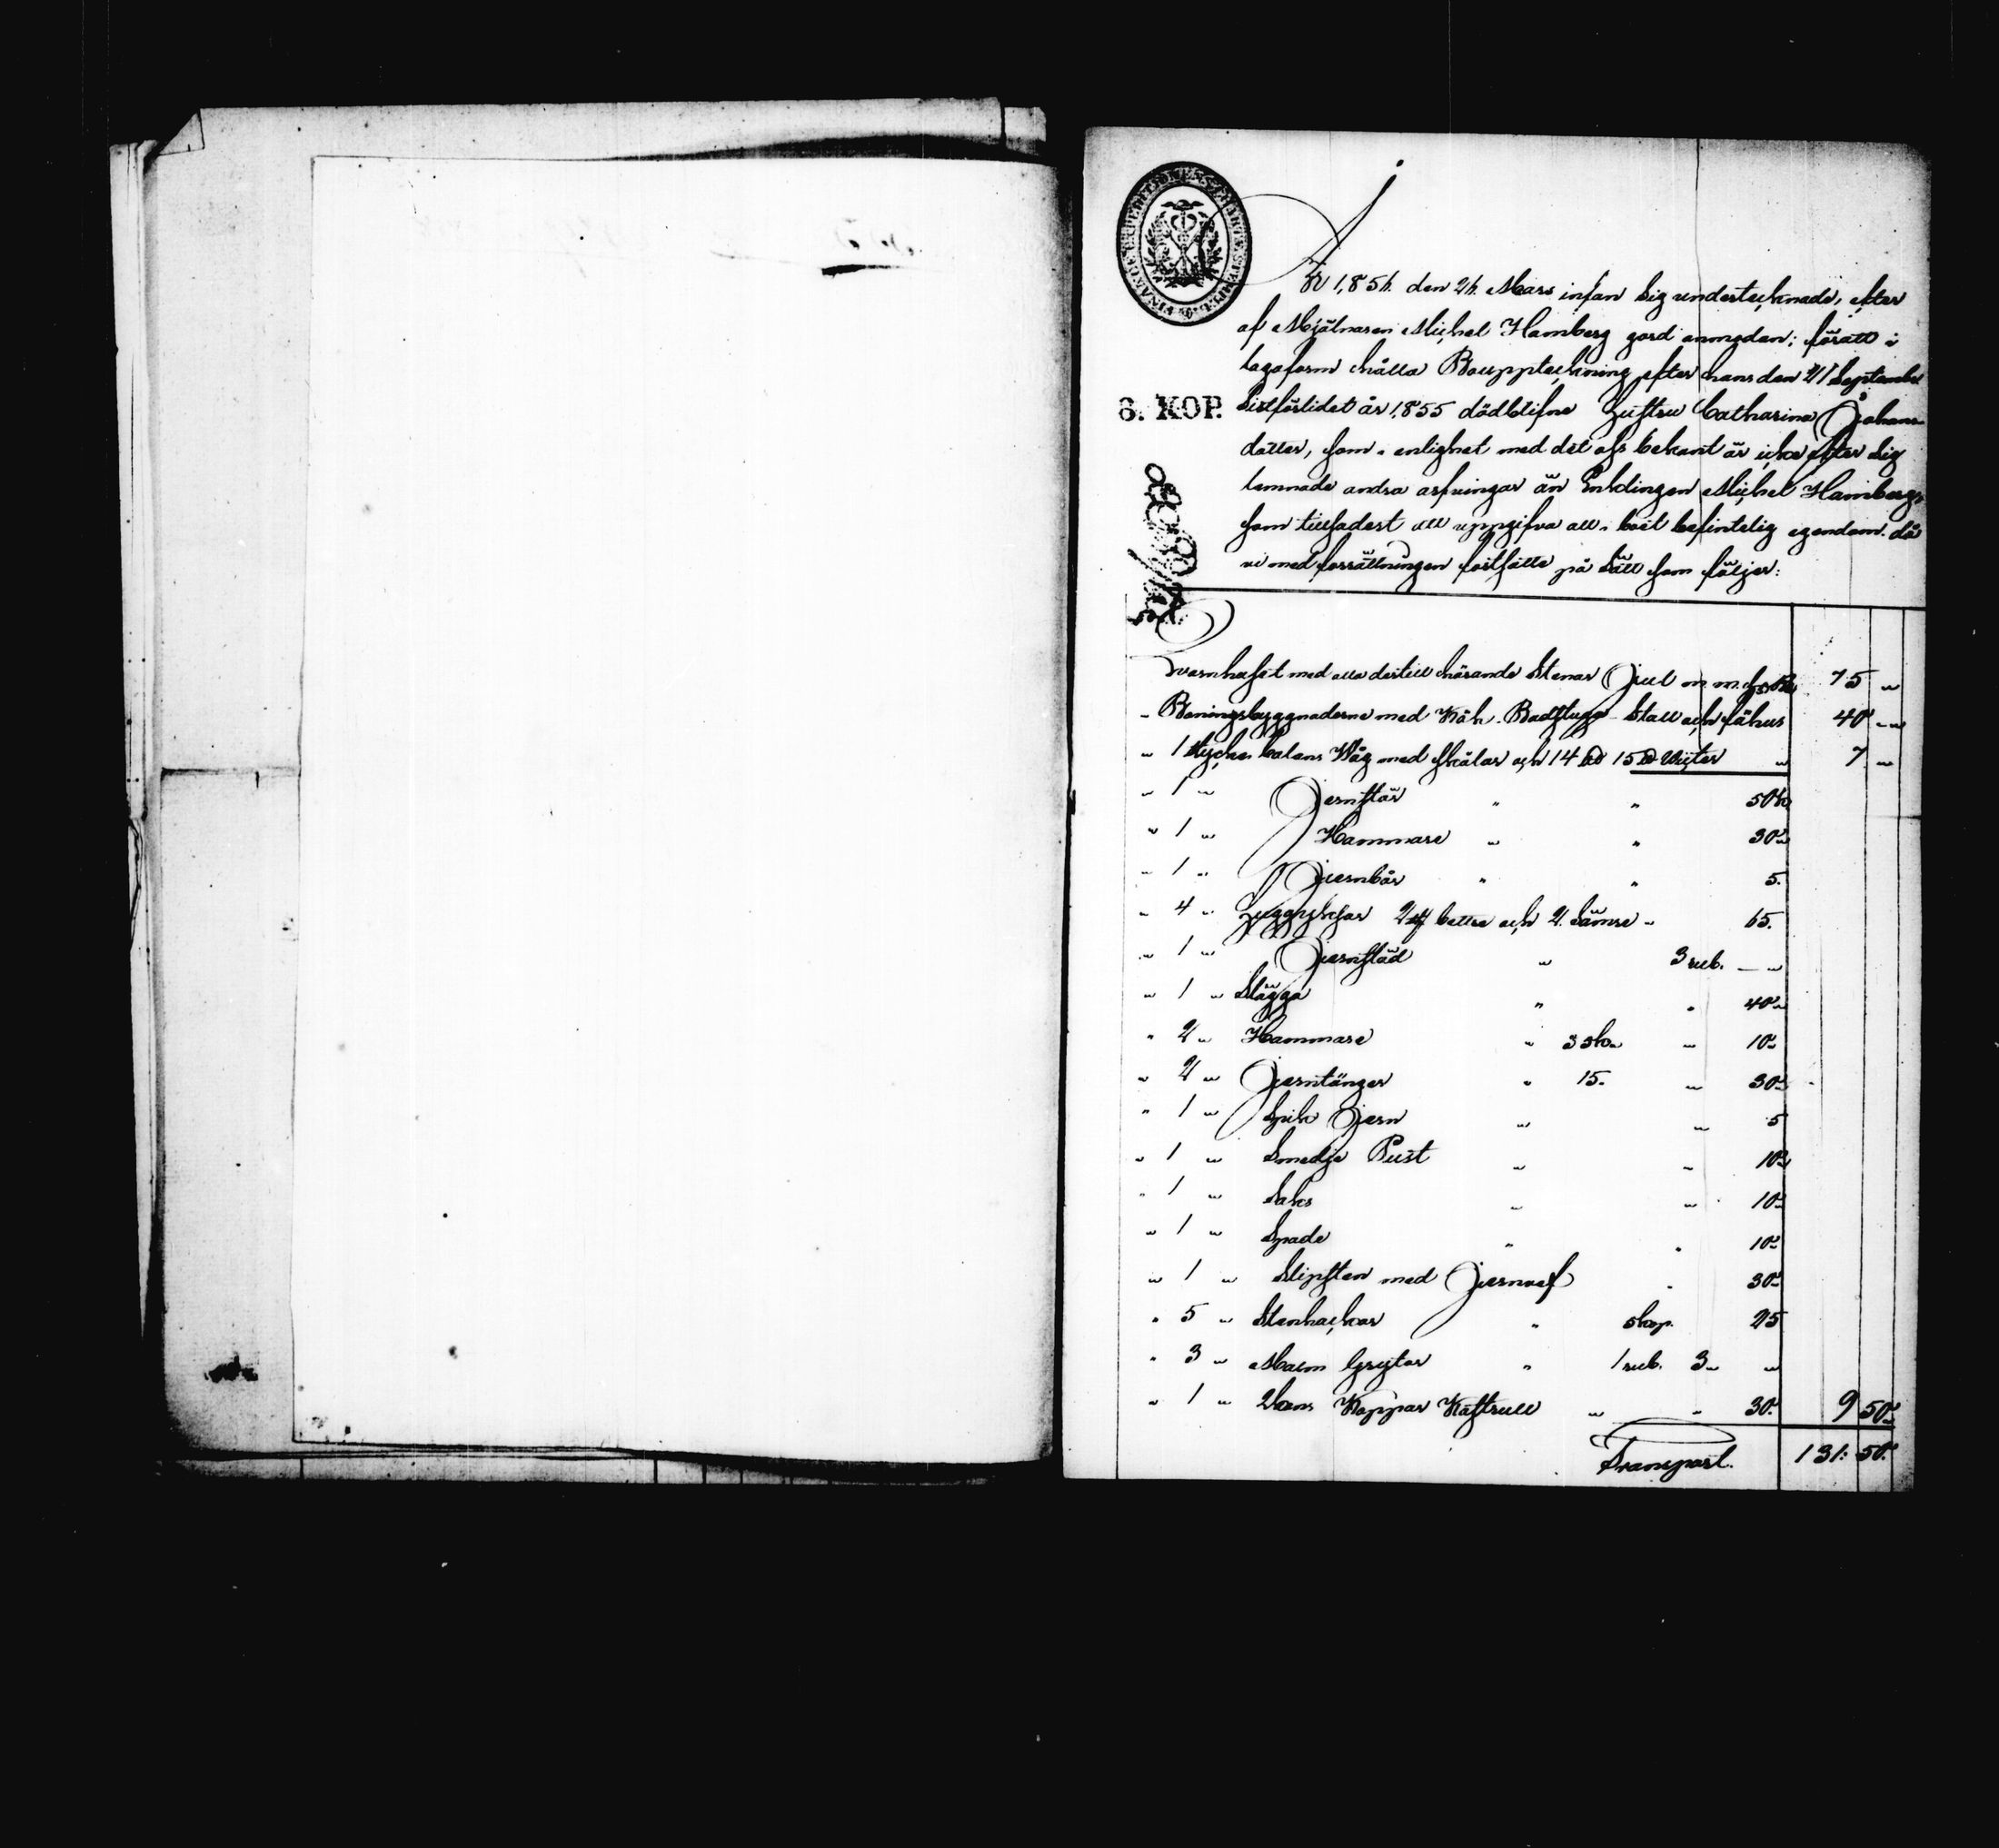 År 1,856. den 26. Mars infan Sig undertecknade, efter
af Mjölnaren Michel Hamberg gord anmodan;föratt i
lagaform hålla Bouppteckning efter hans den 21 September
Sistförlidet år 1,855 dödblifne Hustru Catharina Johans
8. KOP.
dotter, som i enlighet med det oss bekant är icke efter Sig
lemnade andra arfvingar än Enklingen Michel Hamberg,
som tillsadest att uppgifva all i boet befintelig egendom. då
vi med förrättningen fortsatte på Sätt som följer:
Qvarnhuset med alla dertill hörande Stenar Hjul m. m. 75 "
" Boningsbyggnaderne med Kök. Badstuga Stall och fähus 40 "
" 1 stycke balans Våg med skålar och 14 15 Vigter " 7 "
" 1 " Jernstör " " 50 k
" 1 " Hammare " " 30 "
" 1 " Jernbår " " 5.
" 4 " 2 bettre och 2. Sämre " 65.
" 1 " Jernstäd " 3 rub. — "
" 1 " Slägga " " 40 "
" 2 " Hammare " 5 ko " 10 "
" 2 " Jerntänger " 15. " 30 "
" 1 " Spik Jern " " 5
" 1 " Smedje Pust " " 10 "
" 1 " Saks " " 10 "
" 1 " Spade " " 10 "
" 1 " Slipsten med Jernvef " 30 "
" 5 " Stenhackor " 5 kop. 25
" 3 " Malm Grytor " 1 rub. 3 " "
" 1 " Koppar Kastrull " " 30. 9 50 "
Transport. 131: 50.